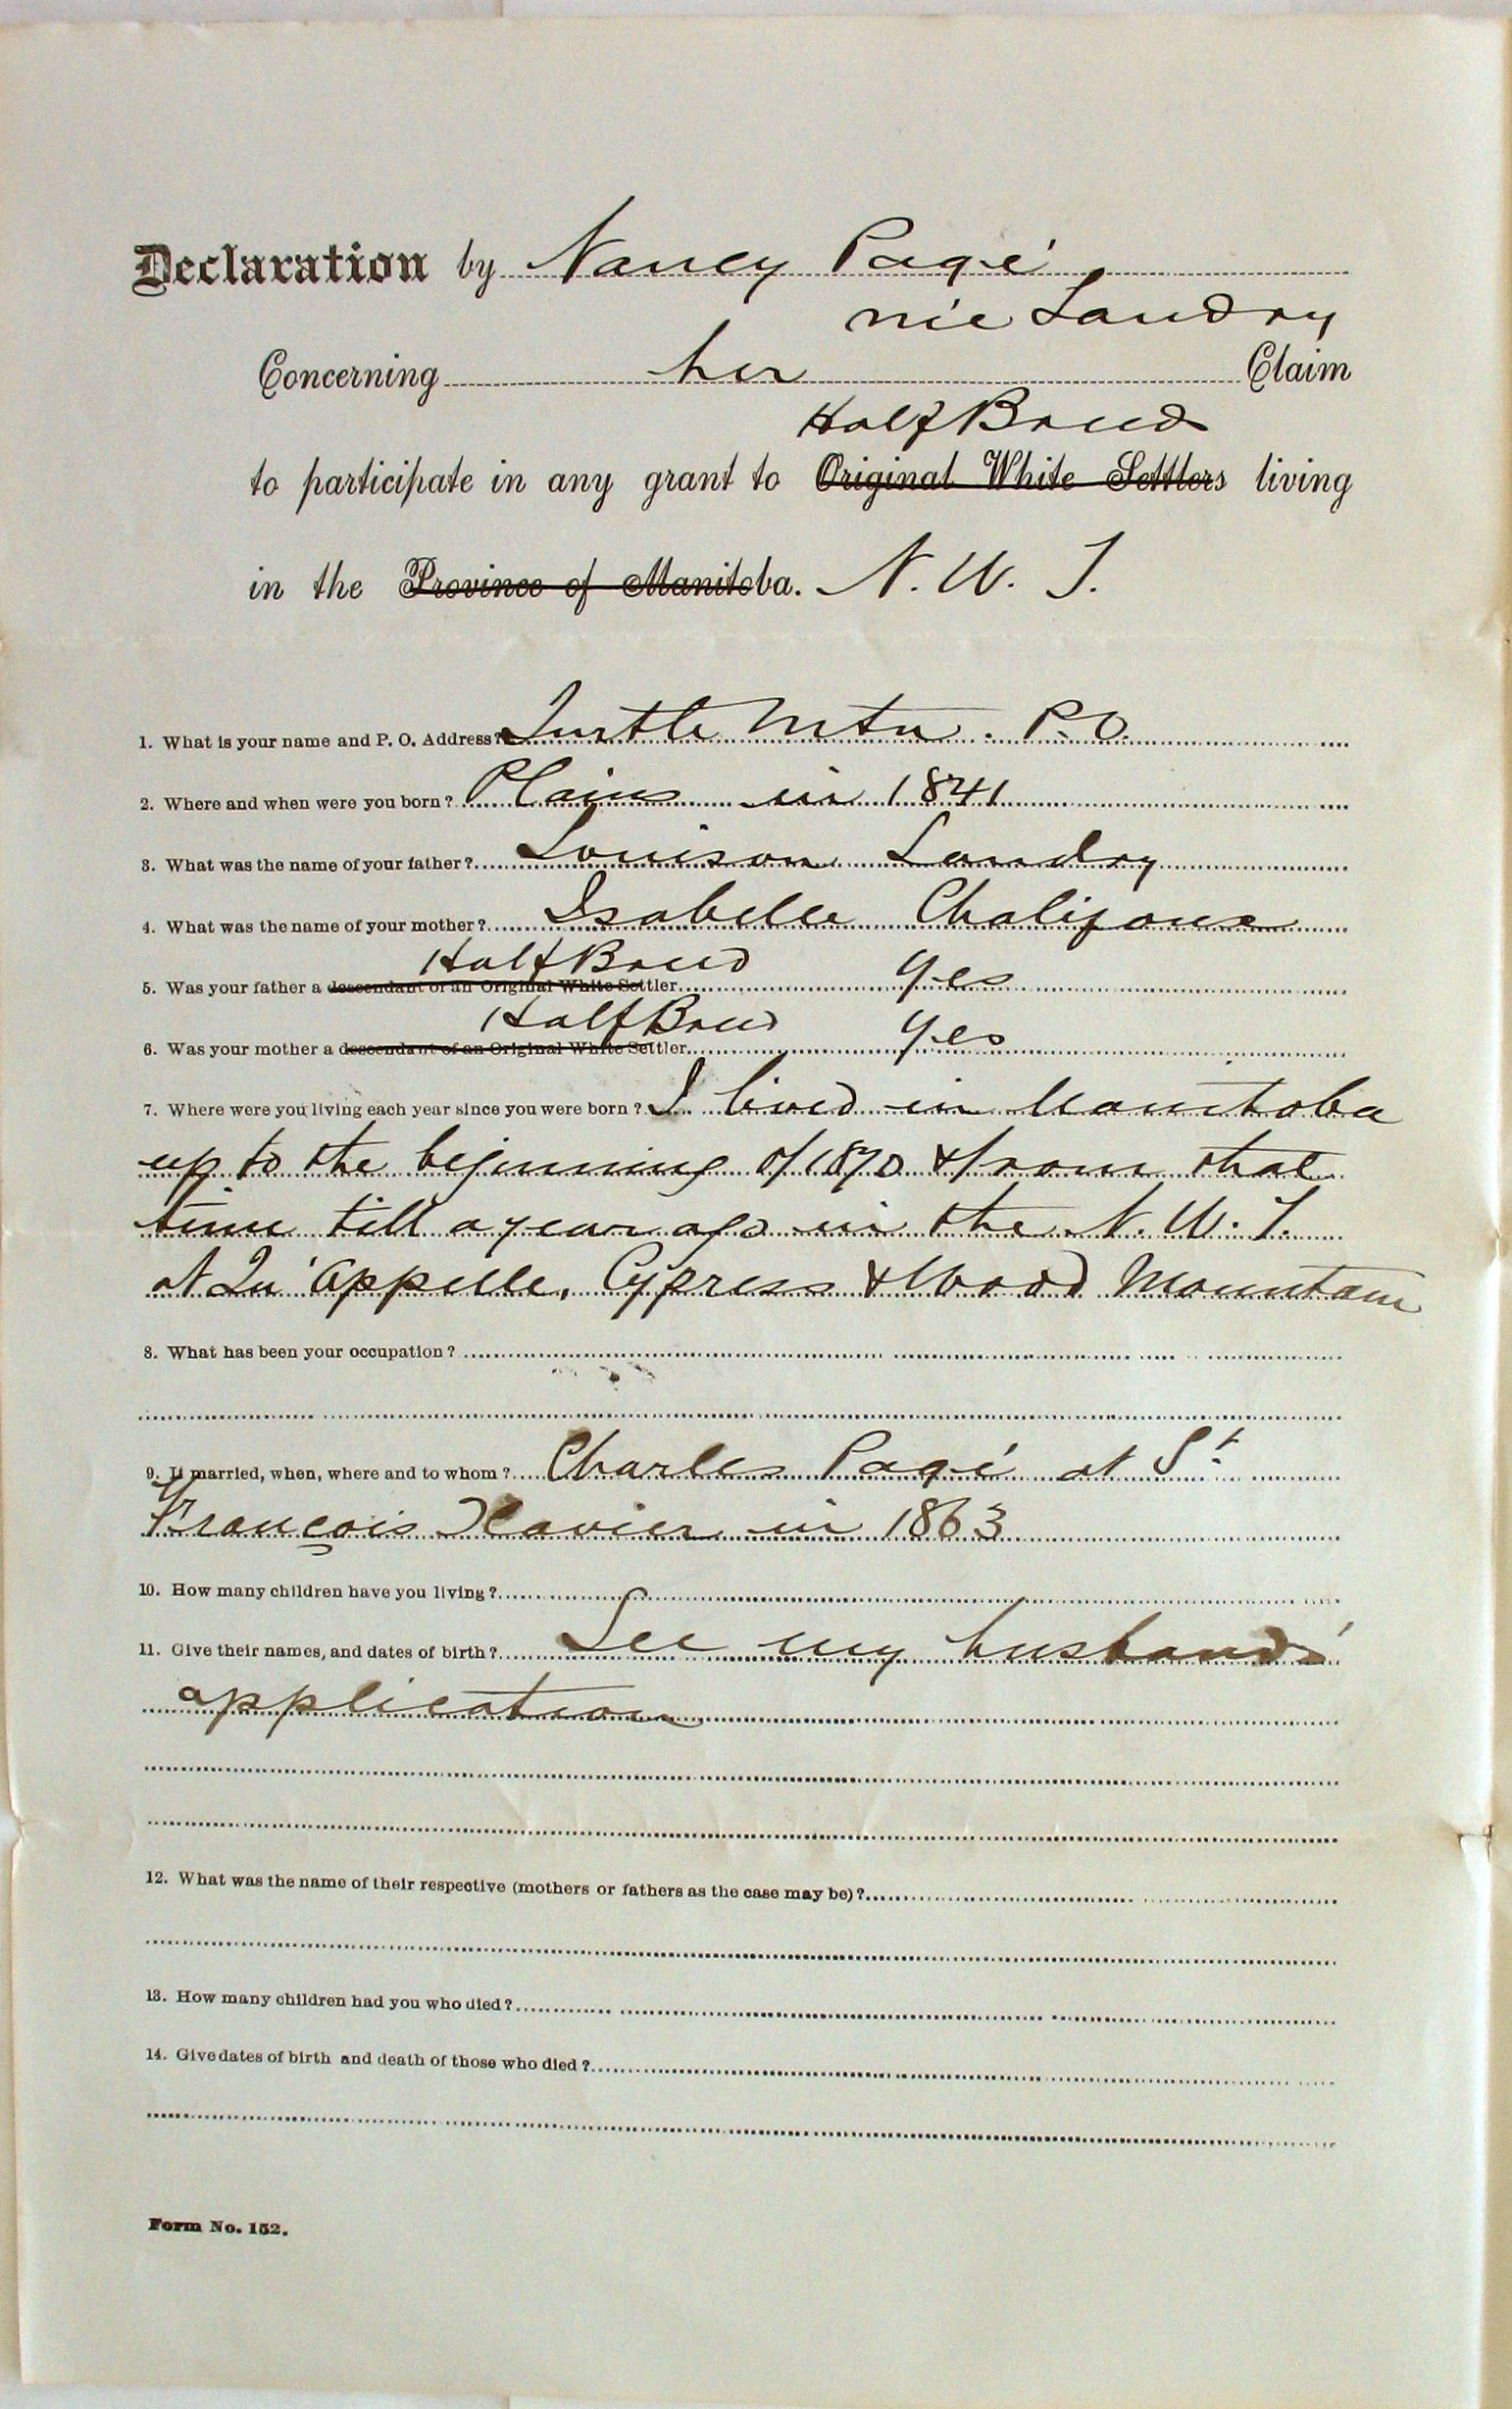 Declaration by Nancy Pagé
née Landry
Concerning her Claim
Half Breed
to participate in any grant to Original White Settlers living
in the Province of Manitoba. N. W. T.
1. What is your name and P. O. Address? Turtle Mtn. P.O.
2. Where and when were you born? Plains in 1841
3. What was the name of your father? Louison Landry
4. What was the name of your mother? Isabelle Chalifoux
Half Breed
5. Was your father a descendant of an Original White Settler Yes
Half Breed
6. Was your mother a descendant of an Original White Settler Yes
7. Where were you living each year since you were born? I lived in Manitoba
up to the beginning of 1870 & from that
time till a year ago in the N. W. T.
at Qu'Appelle, Cypress & Wood Mountain
8. What has been your occupation?
9. If married, when, where and to whom? Charles Pagé at St.
François Xavier in 1863
10. How many children have you living?
11. Give their names, and dates of birth? See my husbands'
application
12. What was the name of their respective (mothers or fathers as the case may be)?
13. How many children had you who died?
14. Give dates of birth and death of those who died?
Form No. 152.